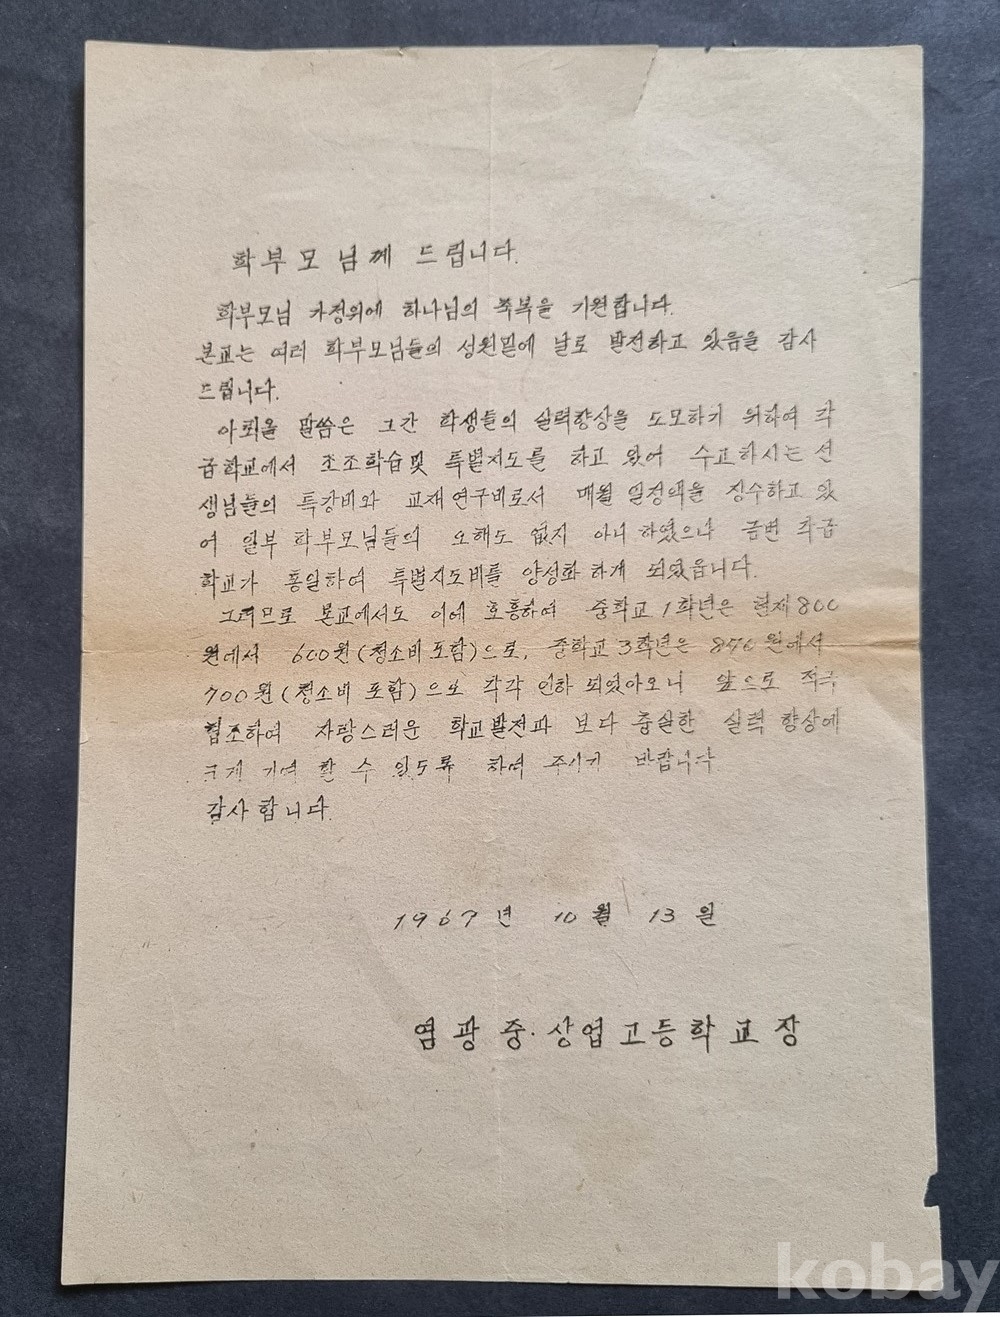 학부모님께 드립니다.
학부모님 가정위에 하나님의 축복을 기원합니다.
본교는 여러 학부모님들의 성원밑에 날로 발전하고 있음을 감사
드립니다.
아뢰올 말씀은 그간 학생들의 실력향상을 도모하기 위하여 각
급학교에서 조조학습및 특별지도를 하고 왔어 수고하시는 선
생님들의 특강비와 교재연구비로서 매월 일정액을 징수하고 있
어 일부 학부모님들의 오해도 없지 아니하였으나 금번 각급
학교가 통일하여 특별지도비를 양성화하게 되었읍니다.
그러므로 본교에서도 이에 호흥하여 중학교 1학년은 현재 800
원에서 600원(청소비 포함)으로, 중학교 3학년은 850원에서
700원(청소비 포함)으로 각각 인하 되었아오니 앞으로 적극
협조하여 자랑스러운 학교발전과 보다 충실한 실력 향상에
크게 기여 할 수 있도록 하여 주시기 바랍니다
감사합니다.
1967년 10월 13일
염광중·상업고등학교장
kobay